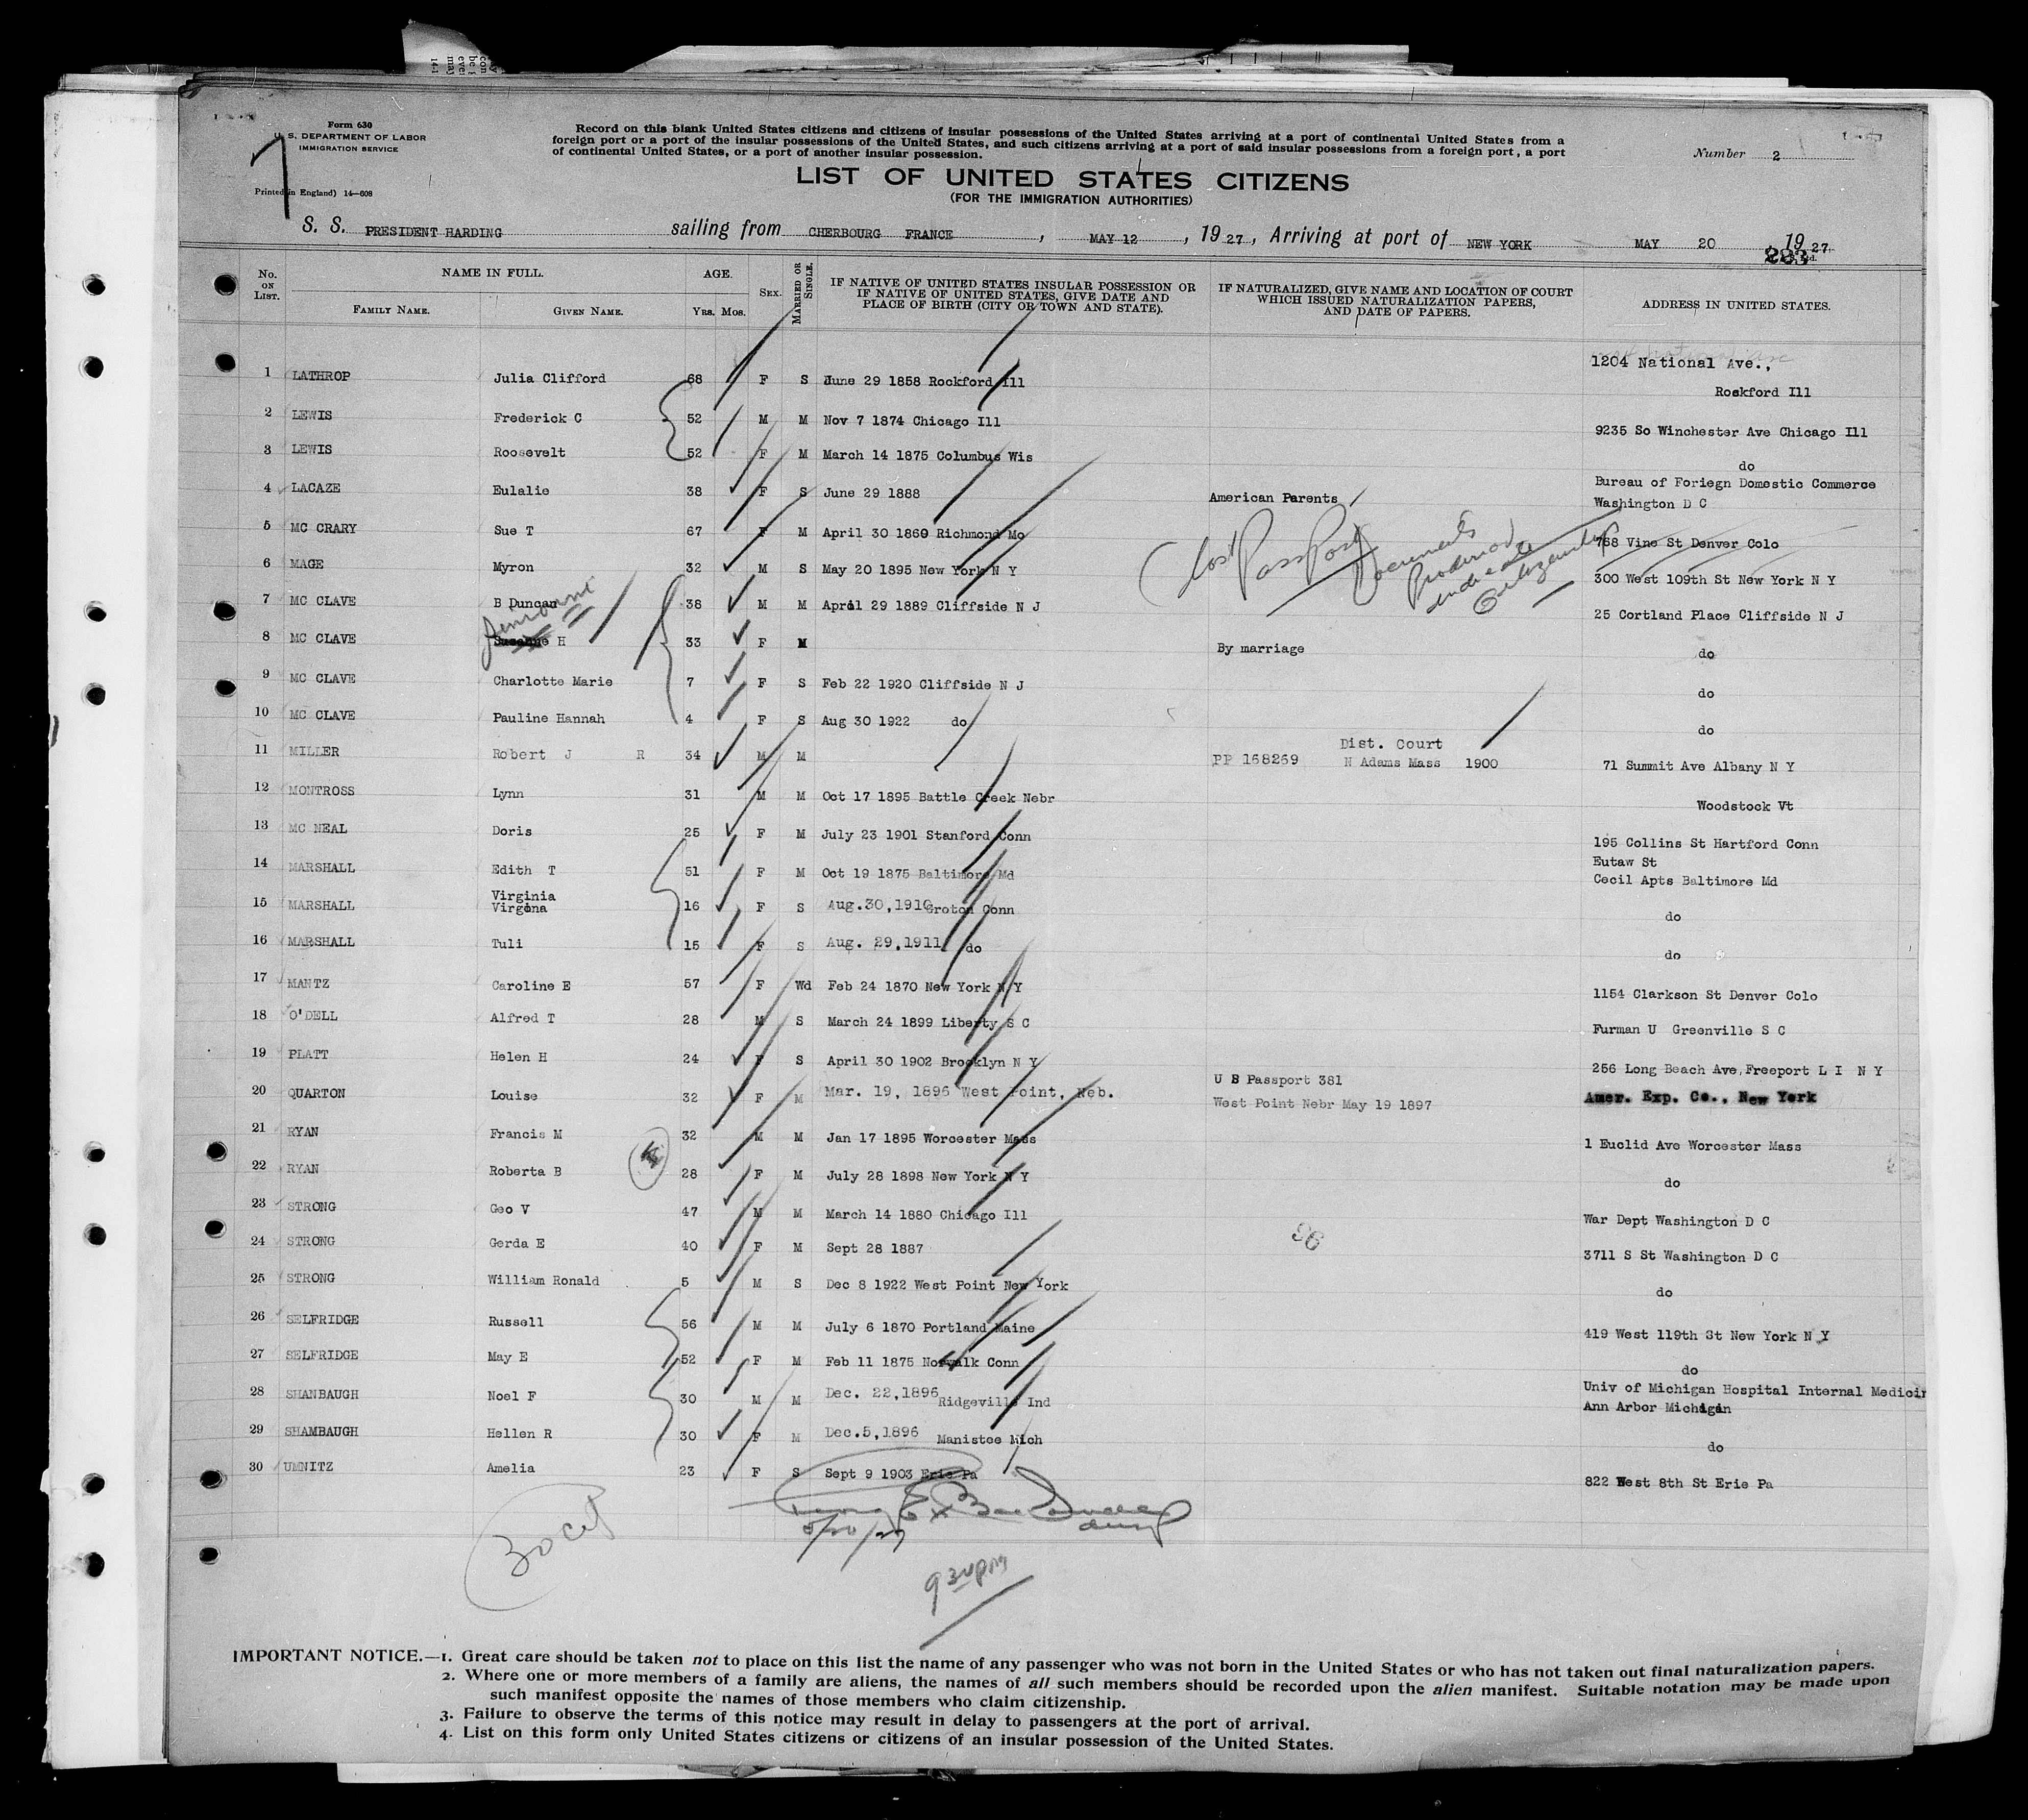 Form 630
U. S. DEPARTMENT OF LABOR
IMMIGRATION SERVICE
Printed in England) 14—608
Record on this blank United States citizens and citizens of insular possessions of the United States arriving at a port of continental United States from a
foreign port or a port of the insular possessions of the United States, and such citizens arriving at a port of said insular possessions from a foreign port, a port
of continental United States, or a port of another insular possession.
Number 2
LIST OF UNITED STATES CITIZENS
(FOR THE IMMIGRATION AUTHORITIES)
S. S. PRESIDENT HARDING sailing from CHERBOURG FRANCE, MAY 12, 1927, Arriving at port of NEW YORK MAY 20 1927
283
No. ON LIST. NAME IN FULL. AGE. SEX. MARRIED OR SINGLE. IF NATIVE OF UNITED STATES INSULAR POSSESSION OR IF NATIVE OF UNITED STATES, GIVE DATE AND PLACE OF BIRTH (CITY OR TOWN AND STATE). IF NATURALIZED, GIVE NAME AND LOCATION OF COURT WHICH ISSUED NATURALIZATION PAPERS, AND DATE OF PAPERS. ADDRESS IN UNITED STATES.
FAMILY NAME. GIVEN NAME. YRS. MOS.
1 LATHROP Julia Clifford 68 F S June 29 1858 Rockford Ill 1204 National Ave.,
Roskford Ill
2 LEWIS Frederick C 52 M M Nov 7 1874 Chicago Ill 9235 So Winchester Ave Chicago Ill
3 LEWIS Roosevelt 52 F M March 14 1875 Columbus Wis do
4 LACAZE Eulalie 38 F S June 29 1888 American Parents Bureau of Foriegn Domestic Commerce
Washington D C
5 MC CRARY Sue T 67 F M April 30 1860 Richmond Mo 768 Vine St Denver Colo
Lost Passport Documents Produced indicate Citizenship
6 MAGE Myron 32 M S May 20 1895 New York N Y 300 West 109th St New York N Y
7 MC CLAVE B Duncan 38 M M April 29 1889 Cliffside N J 25 Cortland Place Cliffside N J
8 MC CLAVE H 33 F M By marriage do
9 MC CLAVE Charlotte Marie 7 F S Feb 22 1920 Cliffside N J do
10 MC CLAVE Pauline Hannah 4 F S Aug 30 1922 do do
11 MILLER Robert J R 34 M M PP 168269 Dist. Court
N Adams Mass 1900 71 Summit Ave Albany N Y
12 MONTROSS Lynn 31 M M Oct 17 1895 Battle Creek Nebr Woodstock Vt
13 MC NEAL Doris 25 F M July 23 1901 Stanford Conn 195 Collins St Hartford Conn
14 MARSHALL Edith T 51 F M Oct 19 1875 Baltimore Md Eutaw St
Cecil Apts Baltimore Md
Virginia
15 MARSHALL Virgina 16 F S Aug.30,1910 Groton Conn do
16 MARSHALL Tuli 15 F S Aug. 29,1911 do do
17 MANTZ Caroline E 57 F Wd Feb 24 1870 New York N Y 1154 Clarkson St Denver Colo
18 O'DELL Alfred T 28 M S March 24 1899 Liberty S C Furman U Greenville S C
19 PLATT Helen H 24 F S April 30 1902 Brooklyn N Y 256 Long Beach Ave,Freeport L I N Y
20 QUARTON Louise 32 F M Mar. 19, 1896 West Point, Neb. U S Passport 381
West Point Nebr May 19 1897 Amer. Exp. Co., New York
21 RYAN Francis M 32 M M Jan 17 1895 Worcester Mass 1 Euclid Ave Worcester Mass
22 RYAN Roberta B 28 F M July 28 1898 New York N Y do
23 STRONG Geo V 47 M M March 14 1880 Chicago Ill War Dept Washington D C
24 STRONG Gerda E 40 F M Sept 28 1887 3711 S St Washington D C
25 STRONG William Ronald 5 M S Dec 8 1922 West Point New York do
26 SELFRIDGE Russell 56 M M July 6 1870 Portland Maine 419 West 119th St New York N Y
27 SELFRIDGE May E 52 F M Feb 11 1875 Norwalk Conn do
28 SHANBAUGH Noel F 30 M M Dec. 22,1896 Ridgeville Ind Univ of Michigan Hospital Internal Medicin
Ann Arbor Michigan
29 SHAMBAUGH Hellen R 30 F M Dec.5,1896 Manistee Mich do
30 UMNITZ Amelia 23 F S Sept 9 1903 Erie Pa 822 West 8th St Erie Pa
30 cit
5/20/27
9 30 pm
IMPORTANT NOTICE.—1. Great care should be taken not to place on this list the name of any passenger who was not born in the United States or who has not taken out final naturalization papers.
2. Where one or more members of a family are aliens, the names of all such members should be recorded upon the alien manifest. Suitable notation may be made upon
such manifest opposite the names of those members who claim citizenship.
3. Failure to observe the terms of this notice may result in delay to passengers at the port of arrival.
4. List on this form only United States citizens or citizens of an insular possession of the United States.